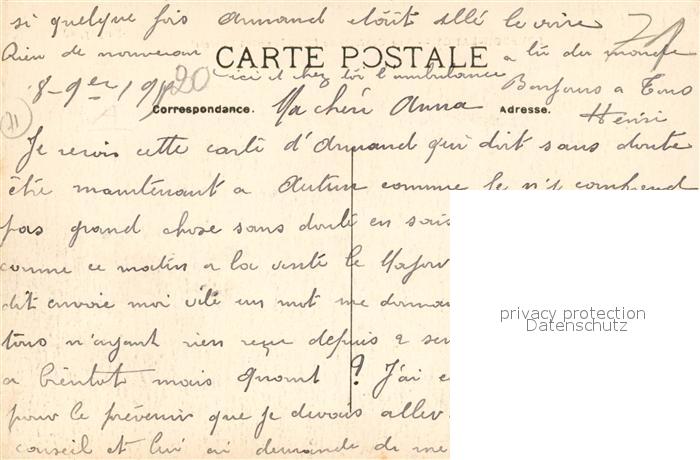 si quelque fois Armand étôut allé le voire
Rien de nouveau
CARTE POSTALE
a lù du monde
ici et chez toi l'ambulance
8-9er 191
20
Bonjours a Tous
Correspondance.
Ma chérie Anna
Adresse.
Henri
71
Je reçois cette carte d'Armand qui doit sans doute
être maintenant a Autun comme le n'y comprend
pas grand chose sans douté en sais
comme ce matin a la visite le Major
dit envoie moi vite un mot me donnan
tous n'ayant rien reçu depuis 2 se
a bientôt mais Quant ? J'ai
pour le prévenir que je devais aller
conseil et lui ai demandé de me
privacy protection
Datenschutz